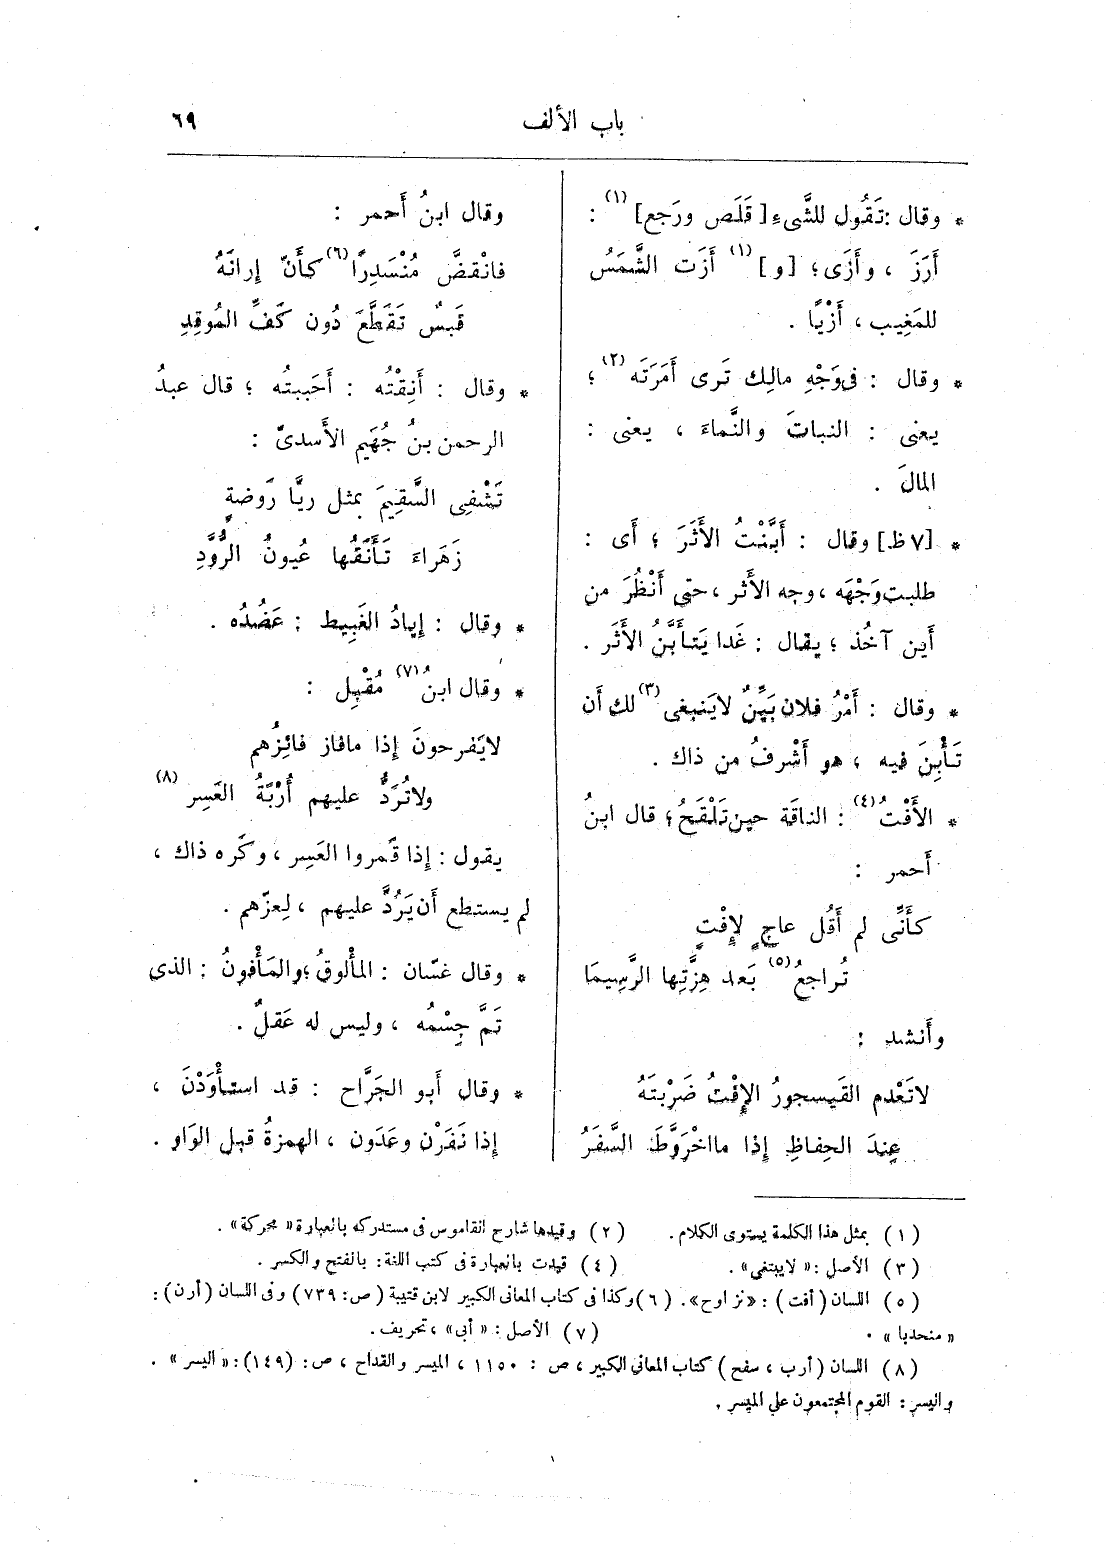 باب الألف
٦٩
* وقال : تَقُول للشَّىءِ [ قَلَص ورَجع ] (١) :
أَرَزَ ، وأَزَى ؛ [ و ] (١) أَزَت الشَّمسُ
للمَغِيب ، أَزْيًا .
* وقال : فى وَجْهِ مالِك تَرى أَمَرَتَه (٢) ؛
يعنى : النباتَ والنَّماءَ ، يعنى :
المالَ .
* [ ٧ ظ ] وقال : أَبَّنْتُ الأَثَرَ ؛ أى :
طلبت وَجْهَه ، وجه الأثر ، حتى أَنْظُرَ من
أَين آخُذ ؛ يقال : غَدا يَتأَبَّنُ الأَثَر .
* وقال : أَمْرُ فلان بَيِّنٌ لايَنبغى (٣) لك أَن
تَأْبِنَ فيه ، هو أَشْرفُ من ذاك .
* الأَفْتُ (٤) : الناقَة حين تَلْقَحُ ؛ قال ابنُ
أَحمر :
كأَنِّى لم أَقُل عاجٍ لإِفْتٍ
تُراجعُ (٥) بَعد هِزَّتِها الرَّسِيمَا
وأَنشد :
لاتَعْدم القَيسجورُ الإِفْتُ ضَرْبتَهُ
عِندَ الحِفاظِ إِذا مااخْرَوَّطَ السَّفَرُ
وقال ابنُ أَحمر :
فانْقضَّ مُنْسَدِرًا (٦) كأَنّ إِرانَهُ
قَبسٌ تَقَطَّعَ دُون كَفِّ المُوقِدِ
* وقال : أَنِقْتُه : أَحَببتُه ؛ قال عبدُ
الرحمن بنُ جُهَيم الأَسدىّ :
تَشْفِى السَّقِيمَ بمثل ريَّا رَوضةٍ
زَهراءَ تَأَنَقُها عُيونُ الرُّوَّدِ
* وقال : إِيادُ الغَبِيط : عَضُدُه .
* وقال ابنُ (٧) مُقْبِل :
لايَفرحونَ إِذا مافاز فائِزُهم
ولاتُرَدُّ عليهم أُرْبَةُ العَسِر (٨)
يقول : إِذا قَمروا العَسِر ، وكَره ذاك ،
لم يستطع أَن يَرُدَّ عليهم ، لِعزّهم .
* وقال غسّان : المأْلوقُ ؛ والمَأْفونُ : الذى
تَمَّ جِسْمُه ، وليس له عَقلٌ .
* وقال أَبو الجَرَّاح : قد استأْوَدْنَ ،
إِذا نَفَرْن وعَدَون ، الهمزةُ قبل الوَاو .
(١) بمثل هذا الكلمة يستوى الكلام . (٢) وقيدها شارح القاموس فى مستدركه بالعبارة « محركة » .
(٣) الأصل : « لا يبتغى » . (٤) قيدت بالعبارة فى كتب اللغة : بالفتح والكسر .
(٥) اللسان ( أفت ) : « نزاوح » . (٦) وكذا فى كتاب المعانى الكبير لابن قتيبة ( ص : ٧٣٩ ) وفى اللسان ( أرن ) :
« منحديا » . (٧) الأصل : « أبى » ، تحريف .
(٨) اللسان ( أرب ، سفح ) كتاب المعانى الكبير ، ص : ١١٥٠ ، الميسر والقداح ، ص : (١٤٩) : « اليسر » .
واليسر : القوم المجتمعون على الميسر .